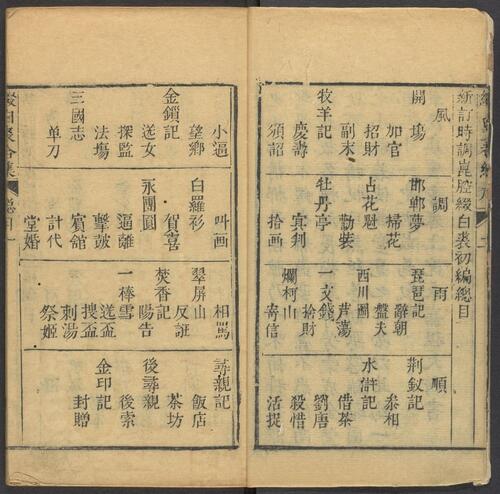 新訂時調崑腔綴白裘初編總目
風
調
雨
順
開塲
加官
招財
副末
牧羊記
慶壽
頒詔
邯鄲夢
掃花
占花魁
勸裝
牡丹亭
冥判
拾画
琵琶記
辭朝
盤夫
西川圖
芦蕩
一文錢
捨財
爛柯山
寄信
荆釵記
叅相
水滸記
借茶
劉唐
殺惜
活捉
小逼
望鄉
金鎖記
送女
探監
法塲
三國志
单刀
叫画
白羅衫
賀喜
永團圓
逼離
擊皷
賓館
計代
堂婚
相罵
翠屏山
反誑
焚香記
陽告
一棒雪
送盃
搜盃
刺湯
祭姬
尋親記
飯店
茶坊
後尋親
後索
金印記
封贈